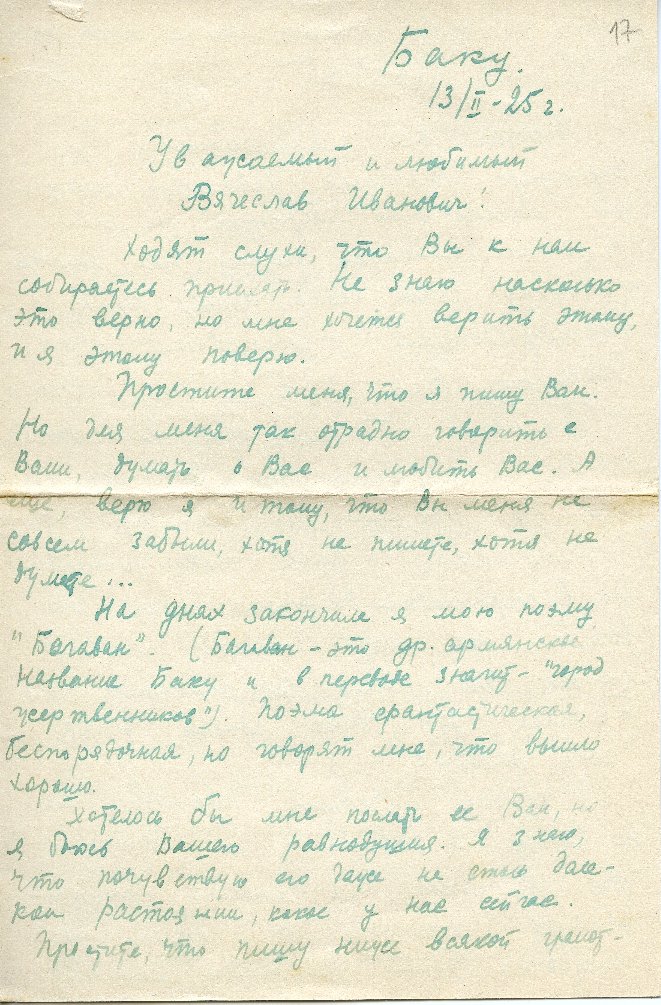 17
Баку.
13/II-25 г.
Уважаемый и любимый
Вячеслав Иванович!
Ходят слухи, что Вы к нам
собираетесь приехать. Не знаю насколько
это верно, но мне хочется верить этому,
и я этому поверю.
Простите меня, что я пишу Вам.
Но для меня так отрадно говорить с
Вами, думать о Вас и любить Вас. А
еще, верю я и тому, что Вы меня не
совсем забыли, хотя не пишете, хотя не
думаете...
На днях закончила я мою поэму
"Багаван". (Багаван - это др. армянское
название Баку и в переводе значит - "город
жертвенников"). Поэма фантастическая,
беспорядочная, но говорят мне, что вышло
хорошо.
Хотелось бы мне послать ее Вам, но
я боюсь Вашего равнодушия. Я знаю,
что почувствую его даже на столь дале-
ком растоянии, какое у нас сейчас.
Простите, что пишу ниже всякой грамот-